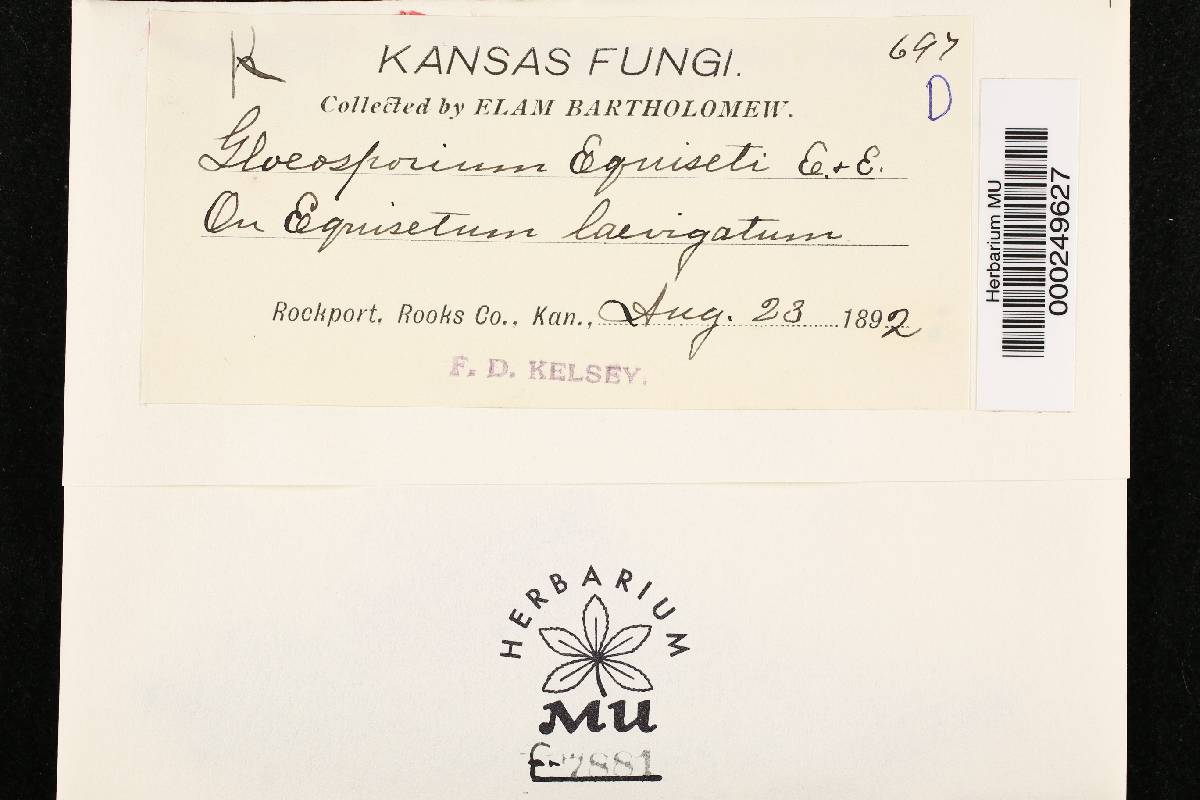 K
697
KANSAS FUNGI.
D
Collected by ELAM BARTHOLOMEW.
Gloeosporium Equiseti E. & E.
On Equisetum laevigatum
Rockport, Rooks Co., Kan., Aug. 23 1892
F. D. KELSEY.
Herbarium MU
000249627
HERBARIUM
MU
F-7881